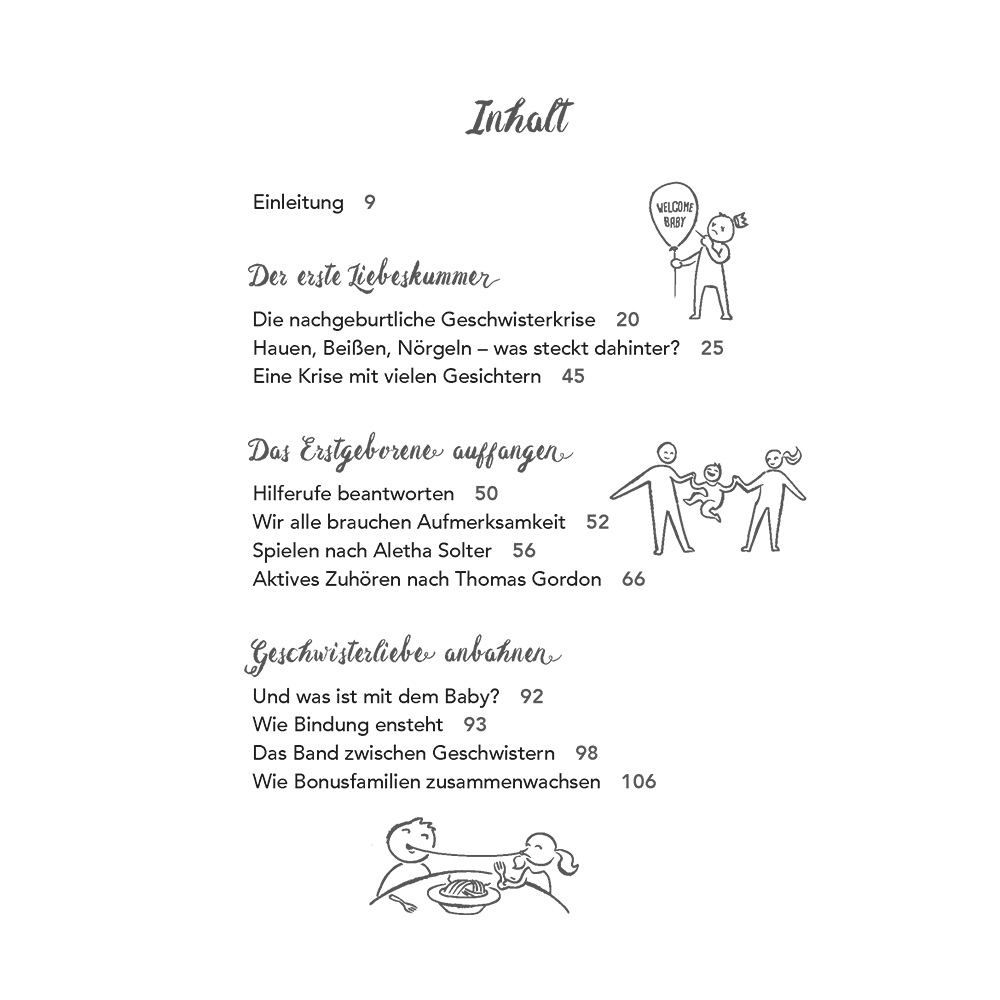 Inhalt
Einleitung 9
WELCOME
BABY
Der erste Liebeskummer
Die nachgeburtliche Geschwisterkrise 20
Hauen, Beißen, Nörgeln – was steckt dahinter? 25
Eine Krise mit vielen Gesichtern 45
Das Erstgeborene auffangen
Hilferufe beantworten 50
Wir alle brauchen Aufmerksamkeit 52
Spielen nach Aletha Solter 56
Aktives Zuhören nach Thomas Gordon 66
Geschwisterliebe anbahnen
Und was ist mit dem Baby? 92
Wie Bindung ensteht 93
Das Band zwischen Geschwistern 98
Wie Bonusfamilien zusammenwachsen 106